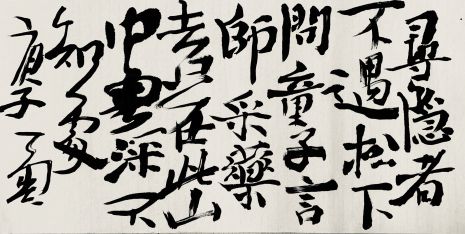 尋隱者
不遇松下
問童子言
師采藥
去只在此山
中雲深不
知處
庚子